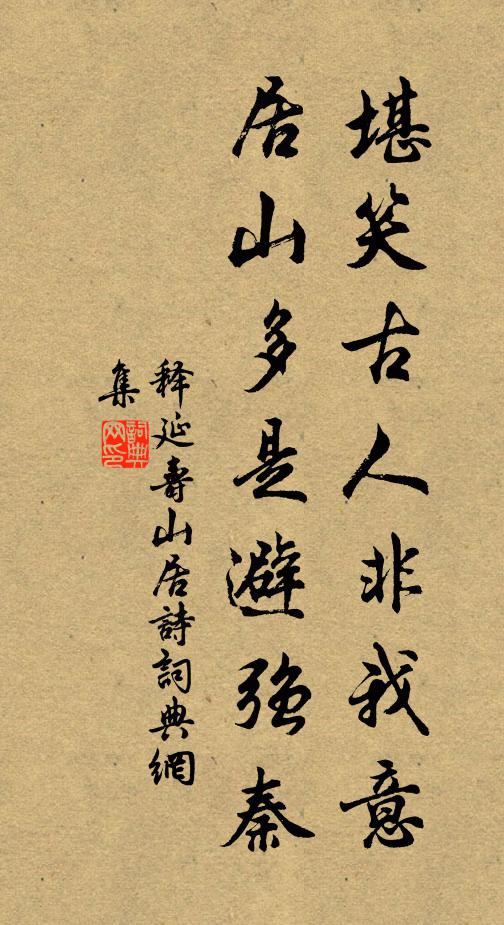 堪笑古人非我意
居山多是避強秦
釋延壽山居詩詞典網
集
詞典
网印